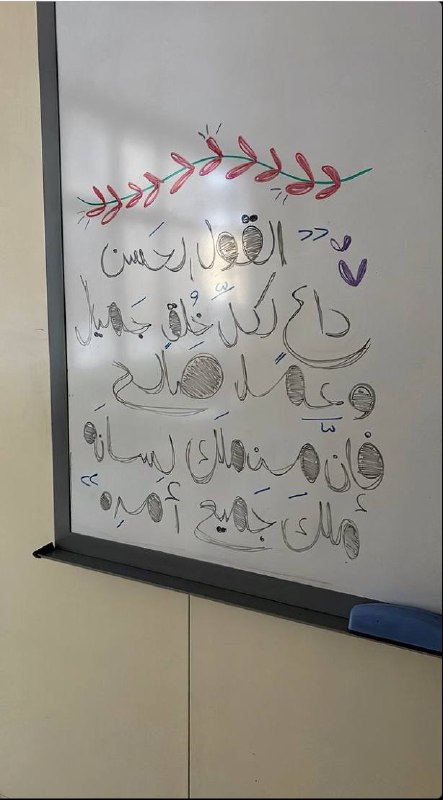 « القول الحَسن
داعٍ لكلّ خُلقٍ جَميل
وعَمل صالح
فإنّ من مَلك لسانَه
مَلكَ جَميع أمرِه »